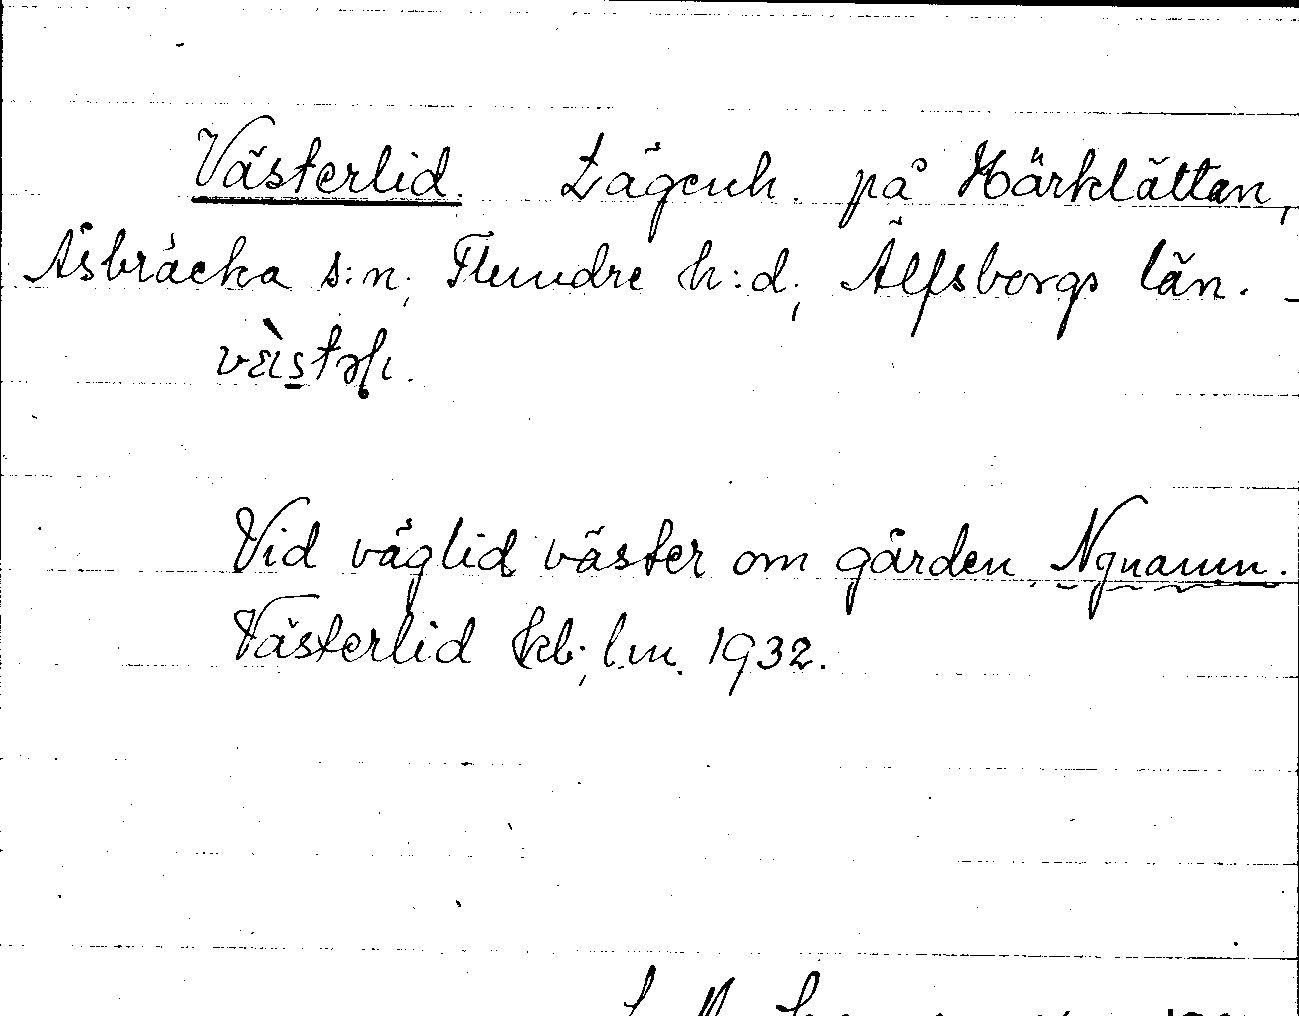 Västerlid. Lägenh. på Härklättan,
Åsbräcka s:n, Flundre h:d, Älfsborgs län. -
Vid väglid väster om gården
Västerlid kb, lm. 1932.